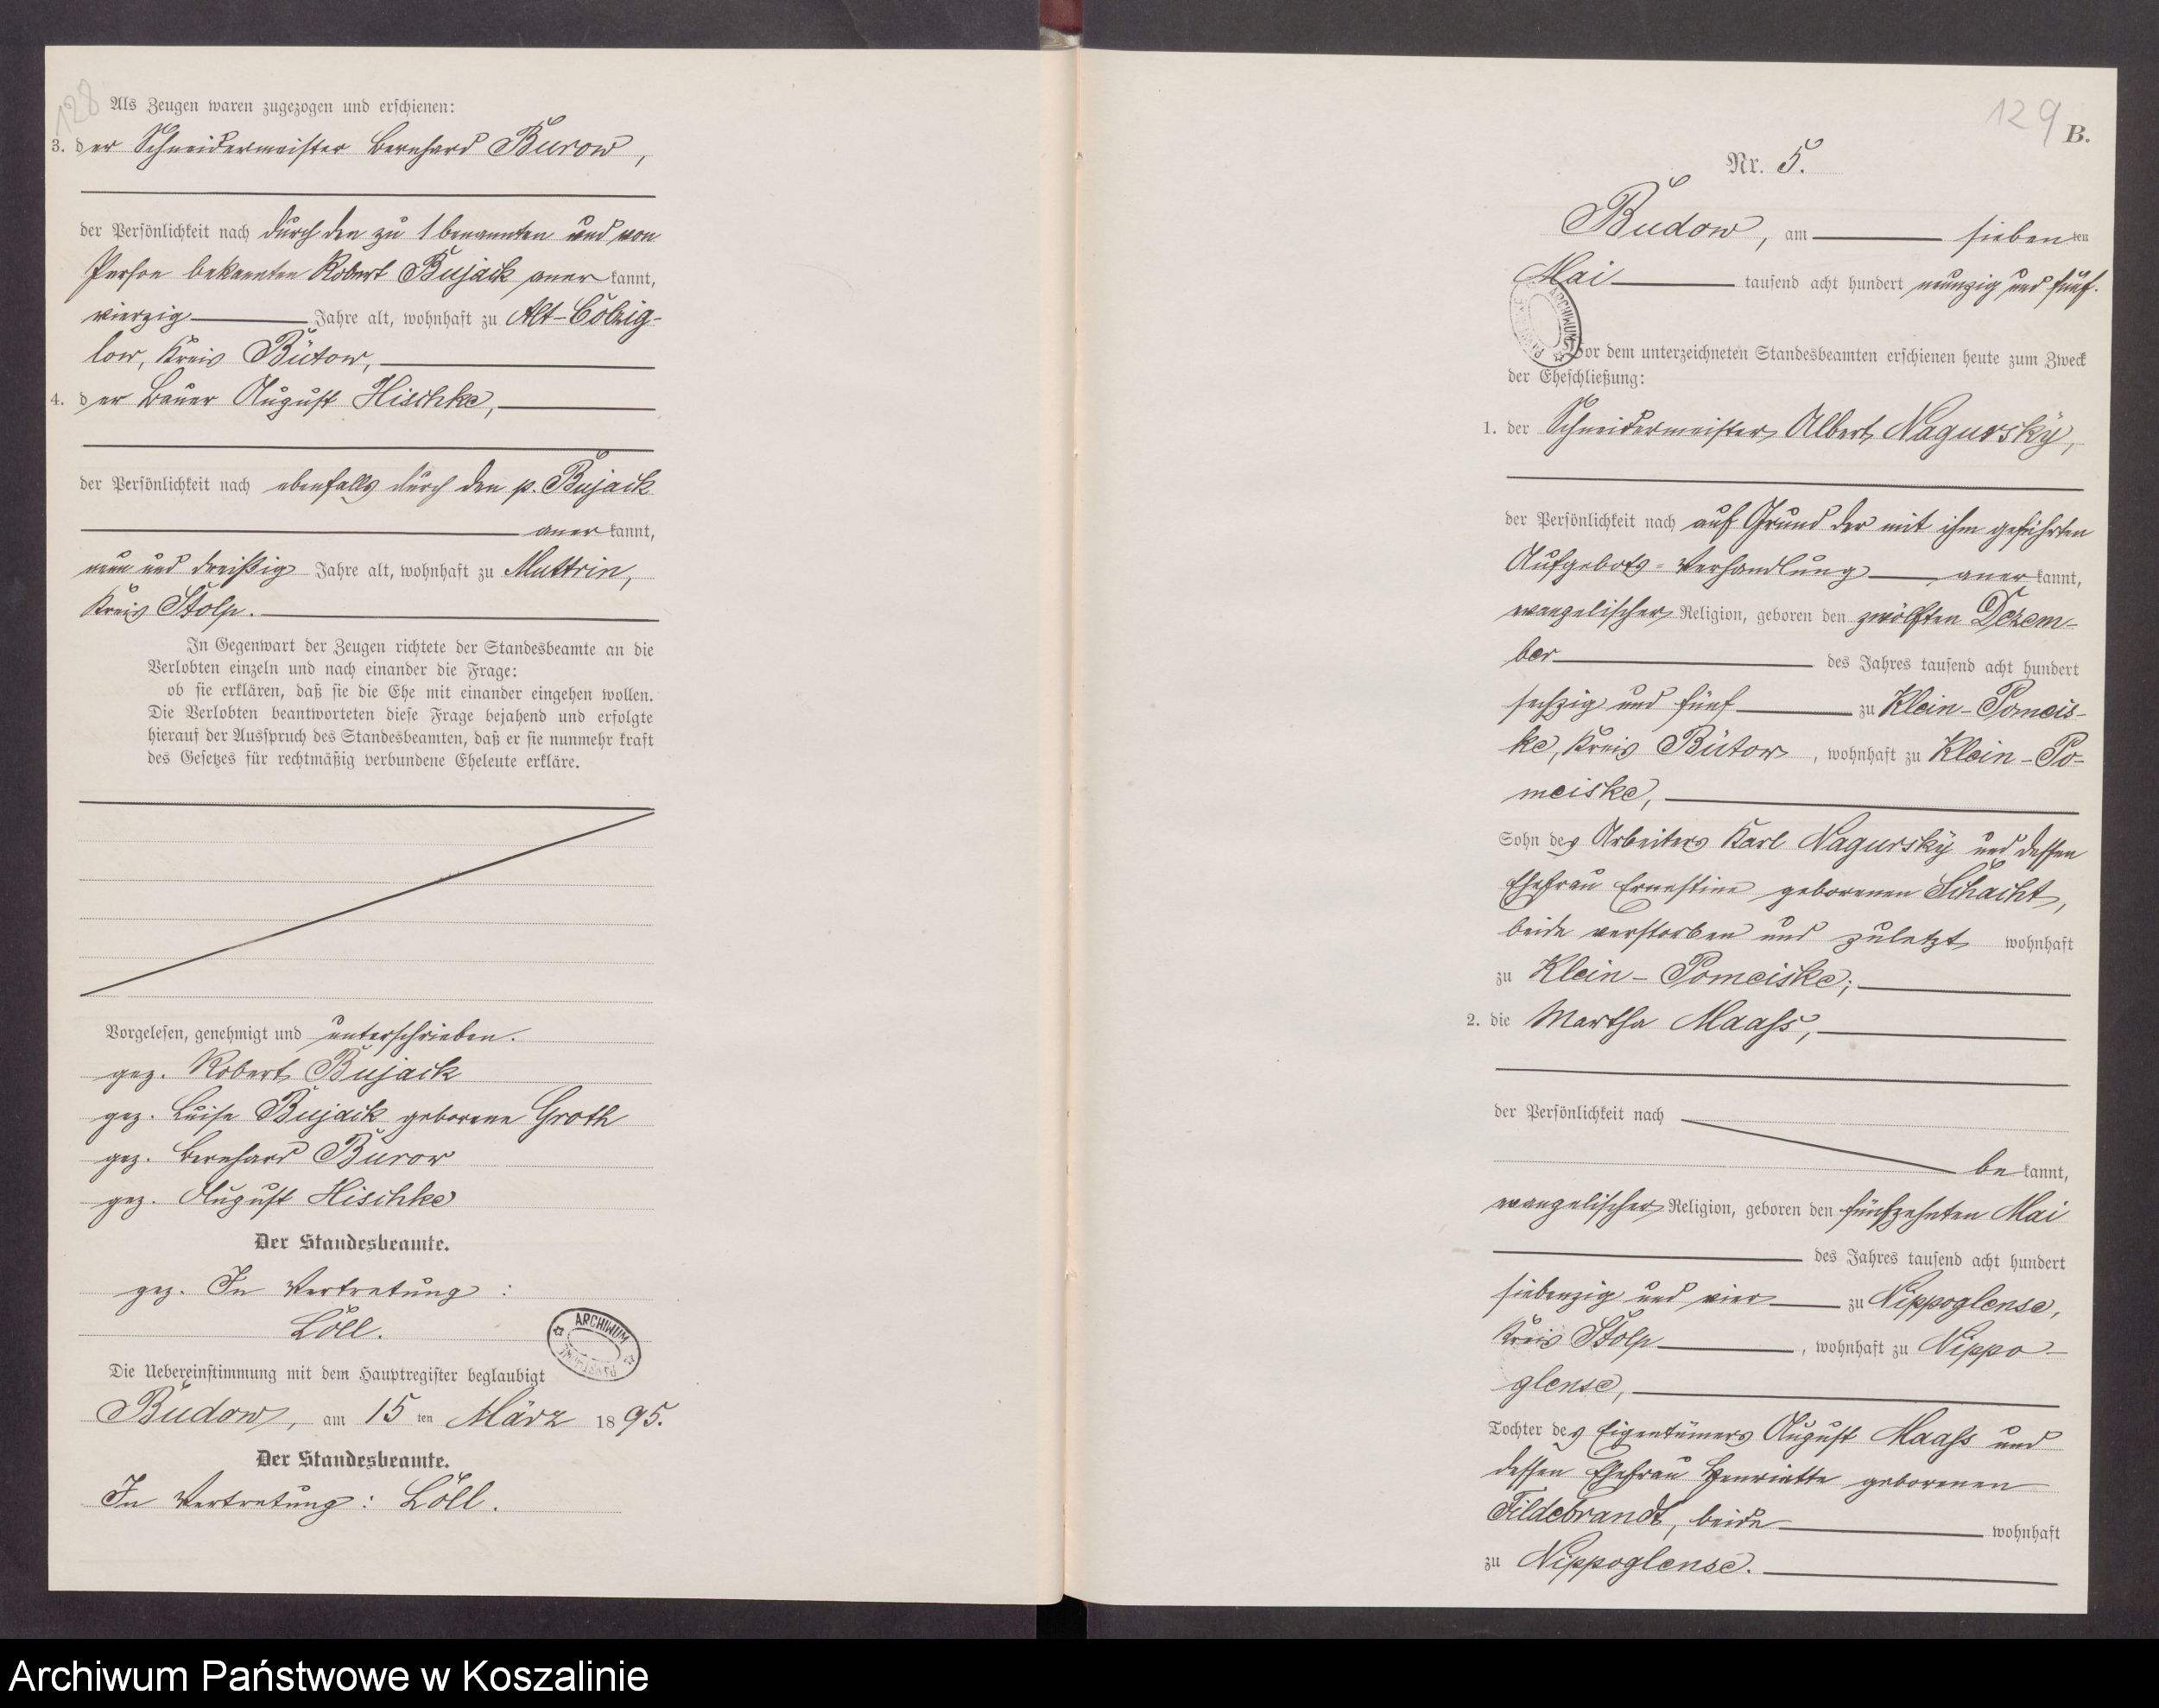 128
Als Zeugen waren zugezogen und erschienen:
3. der Schneidermeister Bernhard Burow,
der Persönlichkeit nach durch den zu 1 benannten und von
Person bekannten Robert Bujack anerkannt,
vierzig Jahre alt, wohnhaft zu Alt-Colzig-
low, Kreis Bütow,
4. der Bauer August Hischke,
der Persönlichkeit nach ebenfalls durch den p. Bujack
anerkannt,
neun und dreißig Jahre alt, wohnhaft zu Muttrin,
Kreis Stolp.
In Gegenwart der Zeugen richtete der Standesbeamte an die
Verlobten einzeln und nach einander die Frage:
ob sie erklären, daß sie die Ehe mit einander eingehen wollen.
Die Verlobten beantworteten diese Frage bejahend und erfolgte
hierauf der Ausspruch des Standesbeamten, daß er sie nunmehr kraft
des Gesetzes für rechtmäßig verbundene Eheleute erkläre.
Vorgelesen, genehmigt und unterschrieben.
gez. Robert Bujack
gez. Luise Bujack geborene Groth
gez. Bernhard Burow
gez. August Hischke
Der Standesbeamte.
gez. In Vertretung:
Löll.
ARCHIWUM PAŃSTWOWE
Die Uebereinstimmung mit dem Hauptregister beglaubigt
Budow, am 15ten März 1895.
Der Standesbeamte.
In Vertretung: Löll.
129
B.
Nr. 5.
Budow, am siebenten
Mai tausend acht hundert neunzig und fünf.
ARCHIWUM PAŃSTWOWE
Vor dem unterzeichneten Standesbeamten erschienen heute zum Zweck
der Eheschließung:
1. der Schneidermeister Albert Nagursky,
der Persönlichkeit nach auf Grund der mit ihm geführten
Aufgebots-Verhandlung anerkannt,
evangelischer Religion, geboren den zwölften Dezem-
ber des Jahres tausend acht hundert
sechzig und fünf zu Klein-Pomeis-
ke, Kreis Bütow, wohnhaft zu Klein-Po-
meiske,
Sohn des Arbeiters Karl Nagursky und dessen
Ehefrau Ernestine geborenen Schacht,
beide verstorben und zuletzt wohnhaft
zu Klein-Pomeiske;
2. die Martha Maaß,
der Persönlichkeit nach
bekannt,
evangelischer Religion, geboren den fünfzehnten Mai
des Jahres tausend acht hundert
siebenzig und vier zu Nippoglense,
Kreis Stolp, wohnhaft zu Nippo-
glense,
Tochter des Eigentümers August Maaß und
dessen Ehefrau Henriette geborenen
Fildebrandt, beide wohnhaft
zu Nippoglense.
Archiwum Państwowe w Koszalinie